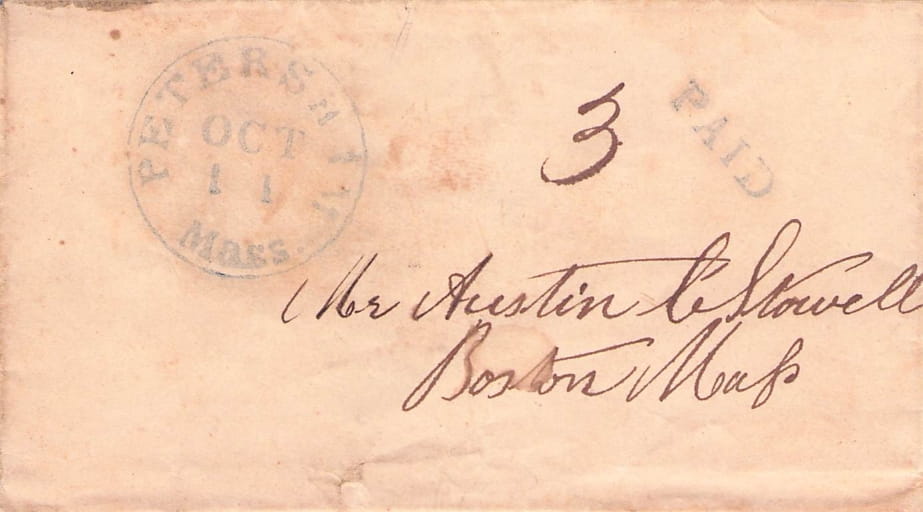 PETERSHAM
OCT
11
Mass.
3
PAID
Mr Austin C Stowell
Boston Mass